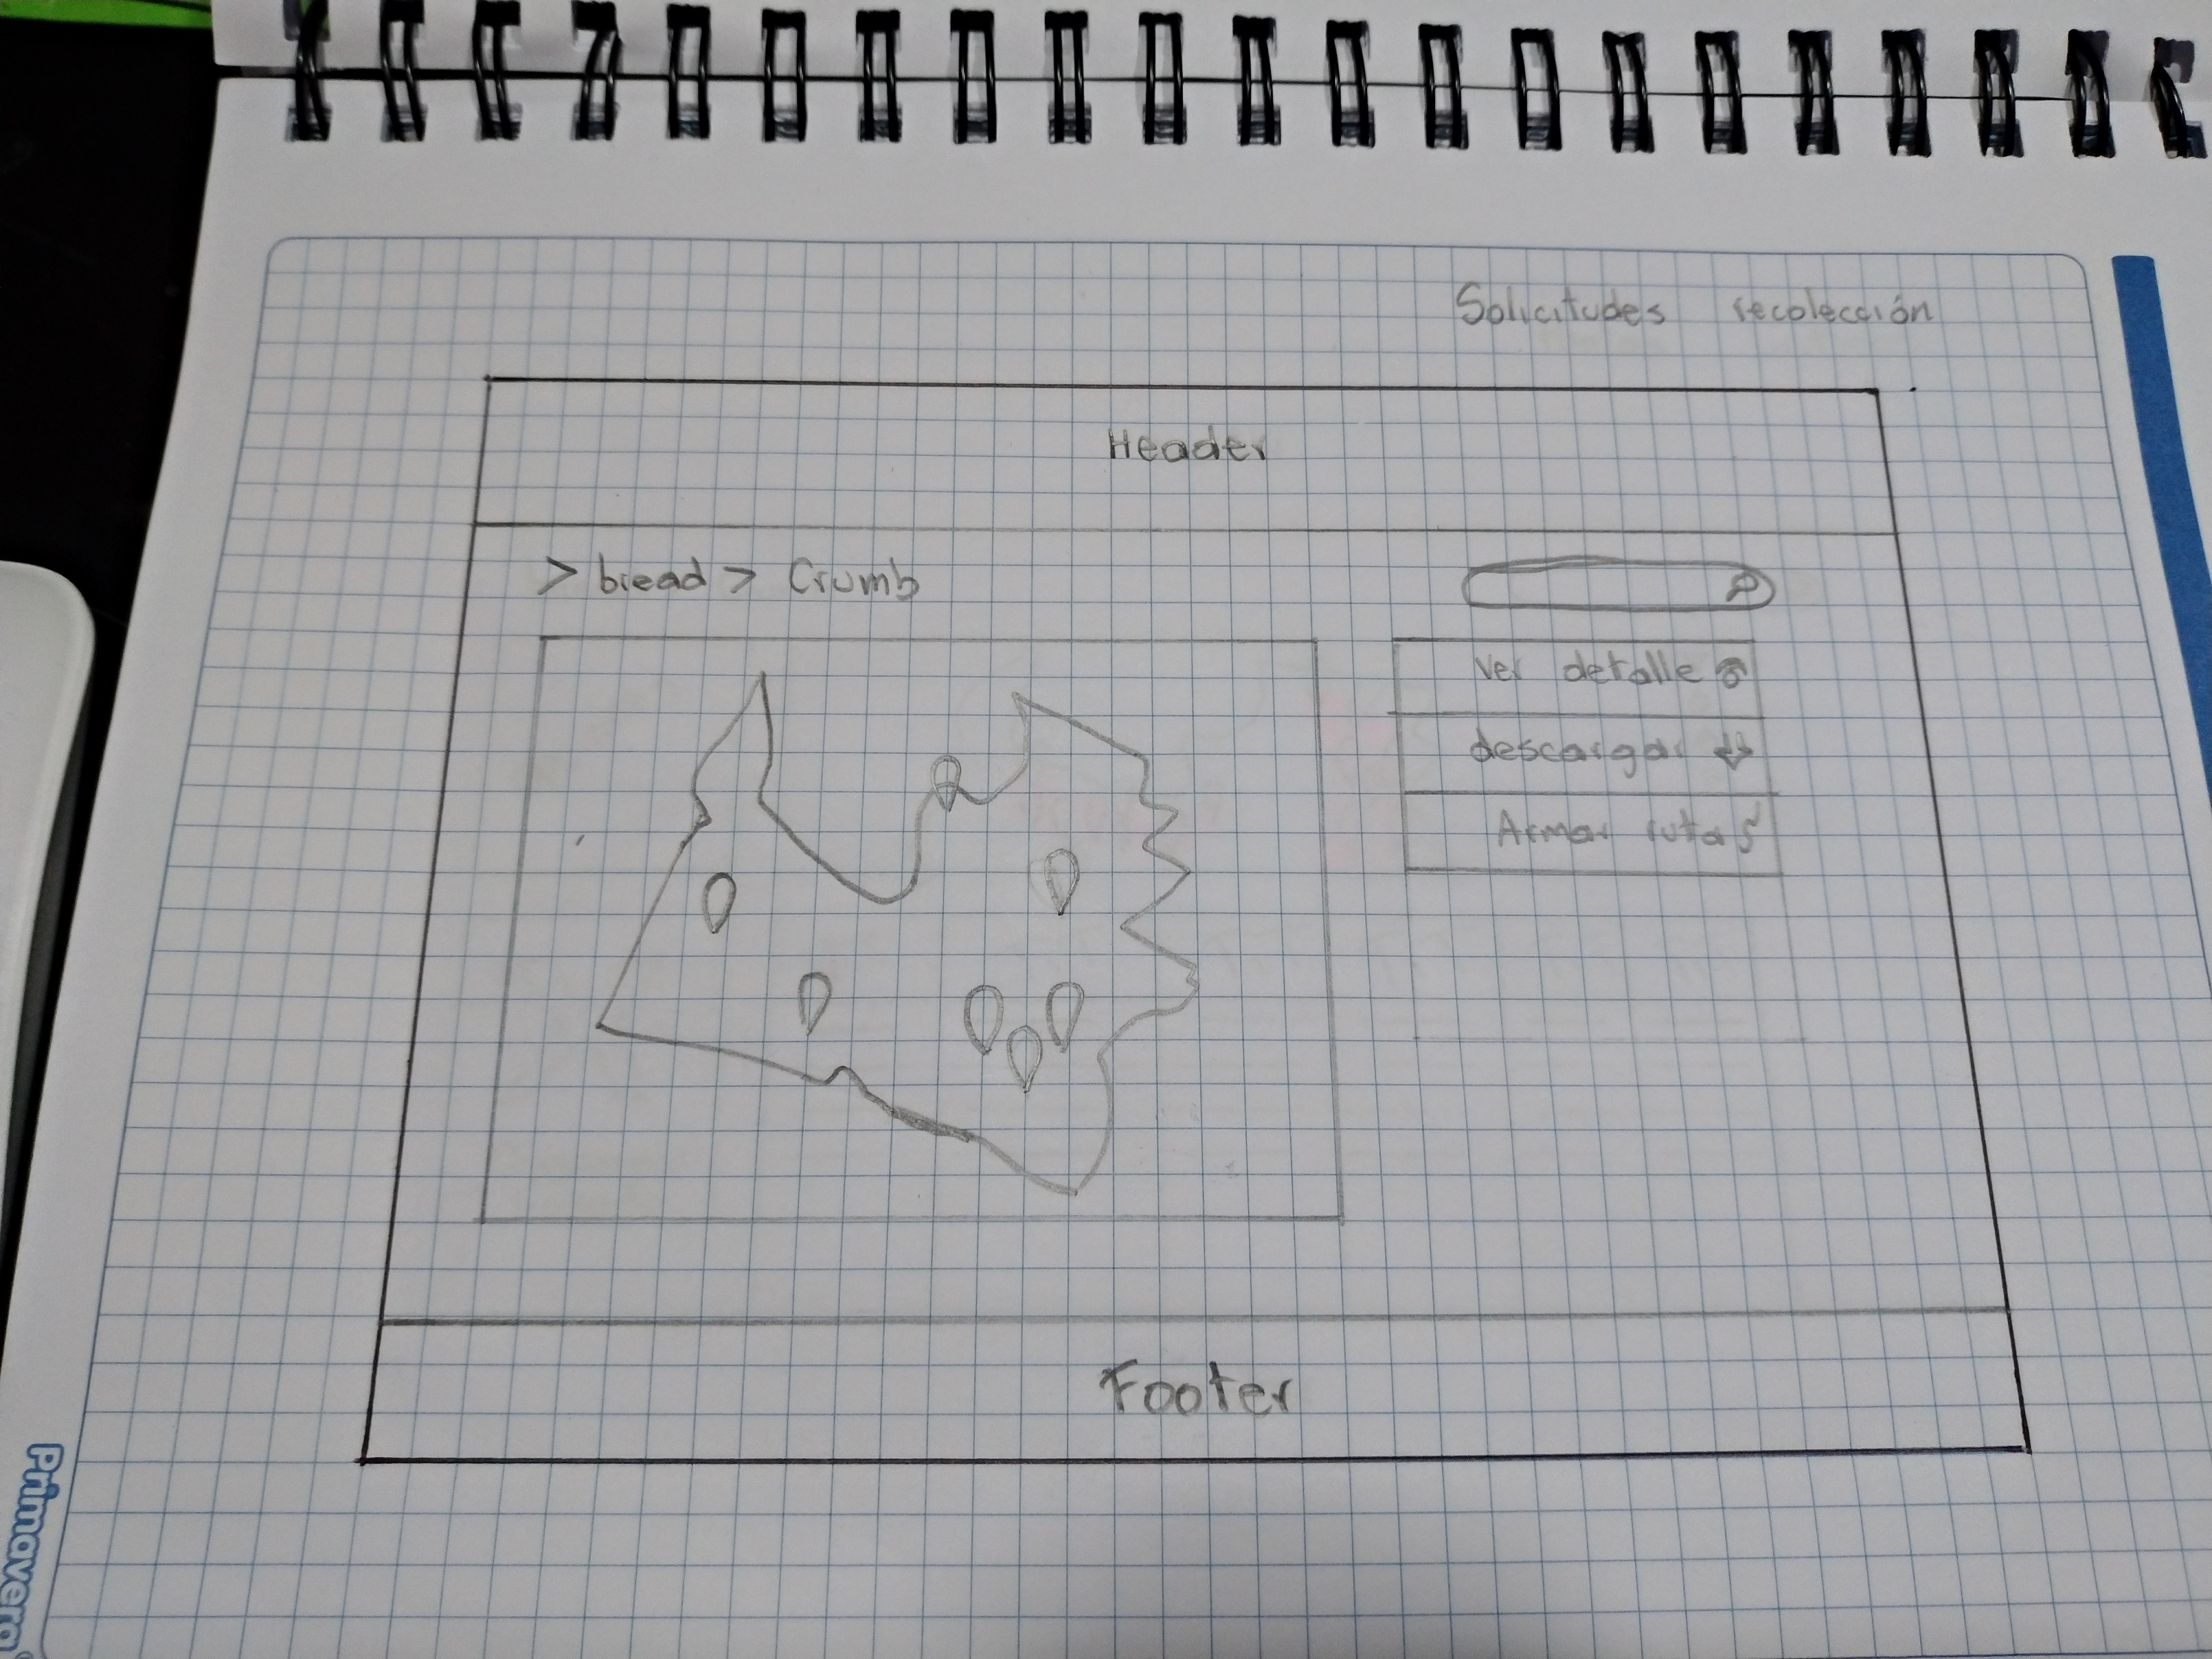 Solicitudes recolección
Header
> bread > Crumb
Ver detalle
descargar
Armar ruta
Footer
Primavera